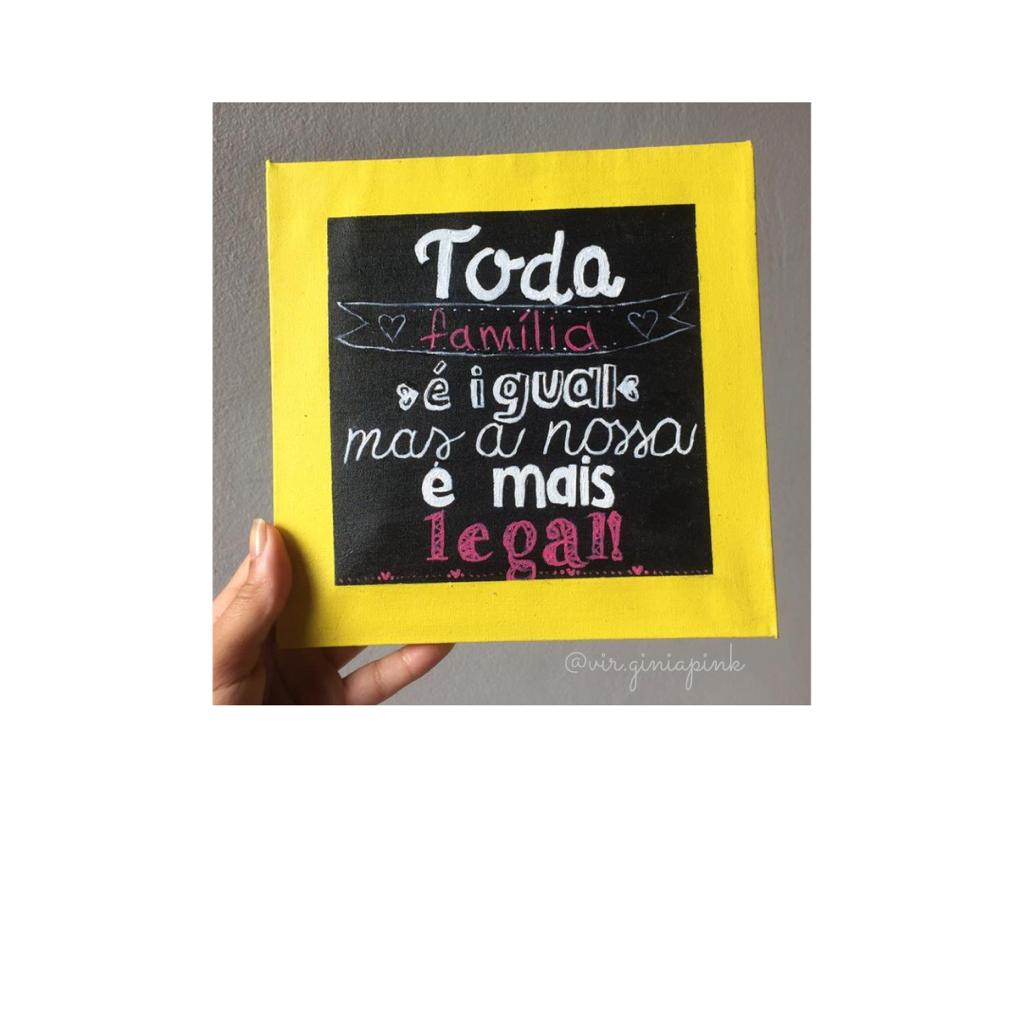 Toda
família
é igual
mas a nossa
é mais
legal!
@vir.giniapink